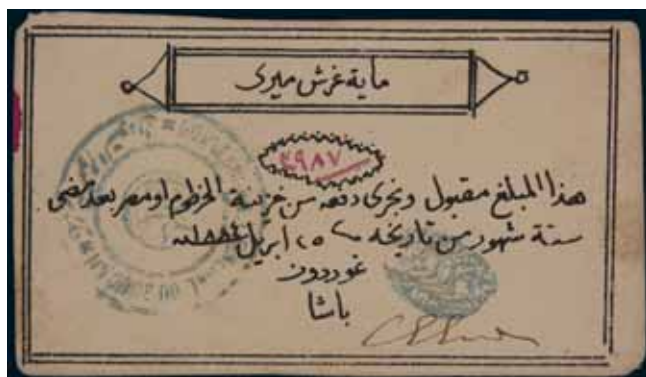 ماية غرش ميرى
٢٩٨٧
هذا المبلغ مقبول وتجرى دفعه من خزينة الخرطوم او مصر بعد مضى
ستة شهور من تاريخه ٢٥ ابريل ١٨٨٤
غوردون
باشا